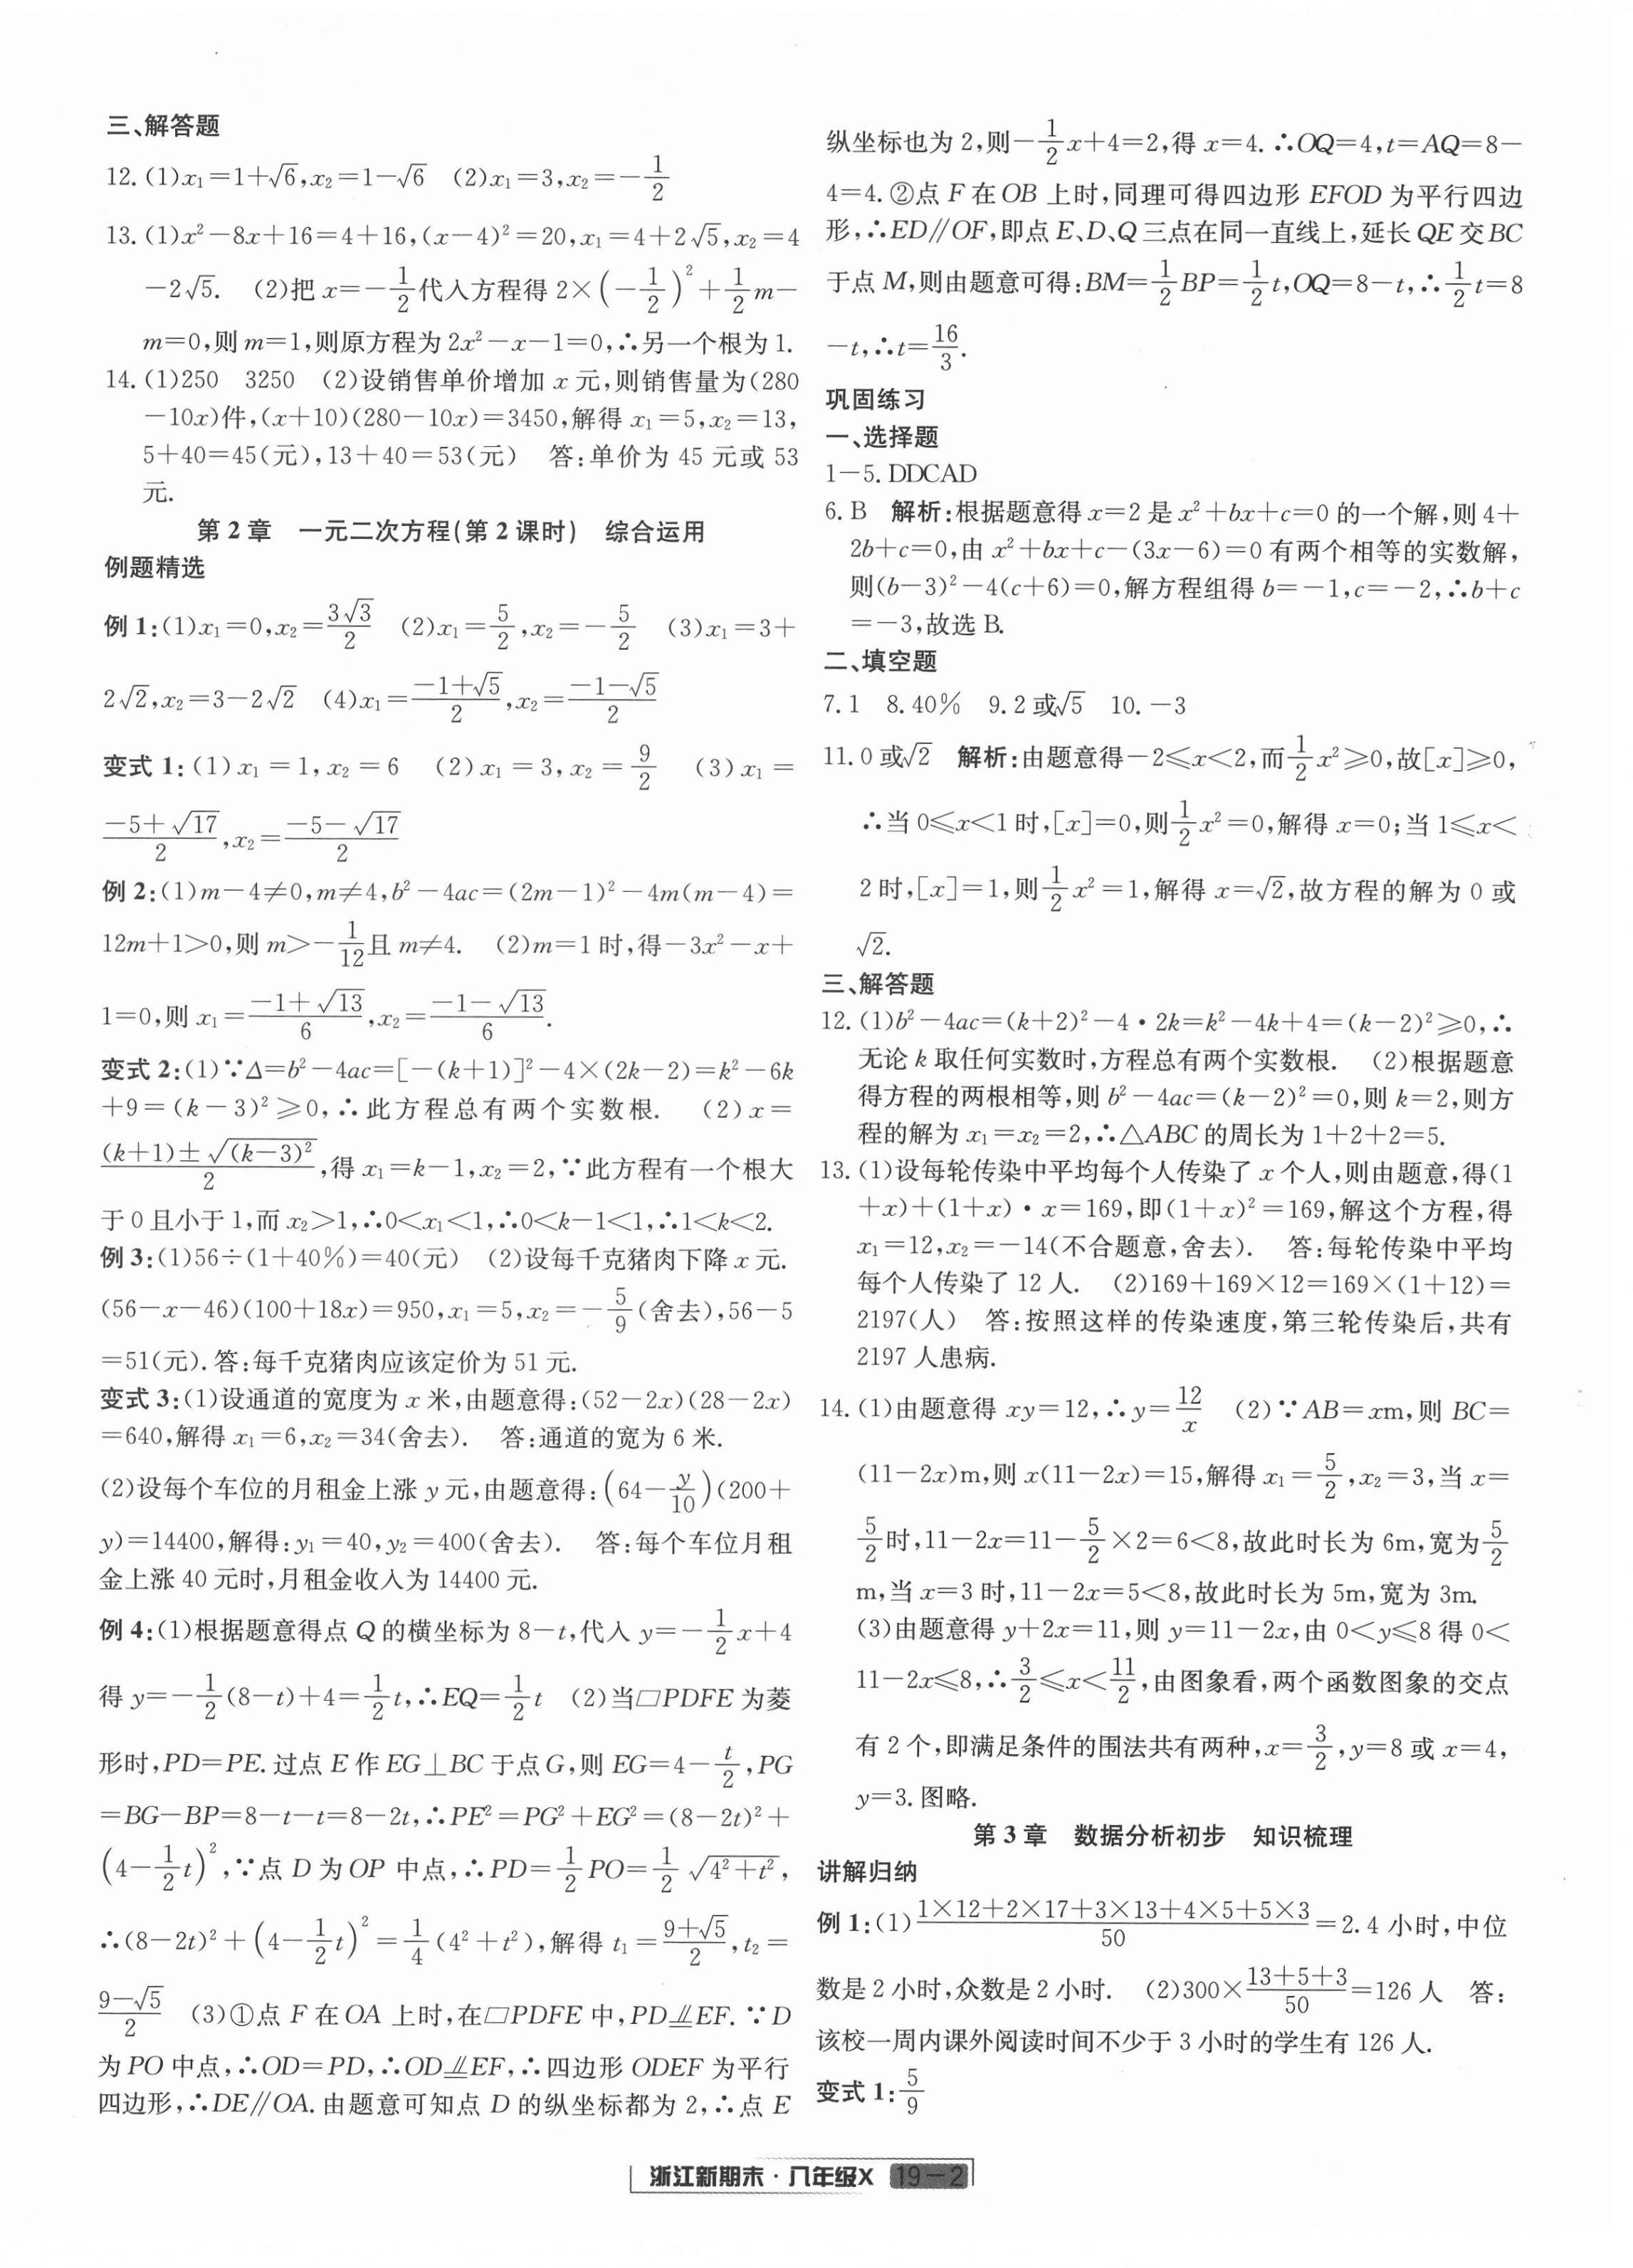 三、解答题
12. (1)x₁=1+√6,x₂=1-√6 (2)x₁=3,x₂=-1/2
13. (1)x²-8x+16=4+16,(x-4)²=20,x₁=4+2√5,x₂=4
-2√5. (2)把 x=-1/2代入方程得 2×(-1/2)²+1/2m-
m=0,则 m=1,则原方程为 2x²-x-1=0,∴另一个根为 1.
14. (1)250 3250 (2)设销售单价增加 x 元,则销售量为(280
-10x)件,(x+10)(280-10x)=3450,解得 x₁=5,x₂=13,
5+40=45(元),13+40=53(元) 答:单价为 45 元或 53
元.
第 2 章 一元二次方程(第 2 课时) 综合运用
例题精选
例 1:(1)x₁=0,x₂=3√3/2 (2)x₁=5/2,x₂=-5/2 (3)x₁=3+
2√2,x₂=3-2√2 (4)x₁=(-1+√5)/2,x₂=(-1-√5)/2
变式 1:(1)x₁=1,x₂=6 (2)x₁=3,x₂=9/2 (3)x₁=
(-5+√17)/2,x₂=(-5-√17)/2
例 2:(1)m-4≠0,m≠4,b²-4ac=(2m-1)²-4m(m-4)=
12m+1>0,则 m>-1/12且 m≠4. (2)m=1 时,得-3x²-x+
1=0,则 x₁=(-1+√13)/6,x₂=(-1-√13)/6.
变式 2:(1)∵Δ=b²-4ac=[-(k+1)]²-4×(2k-2)=k²-6k
+9=(k-3)²≥0,∴此方程总有两个实数根. (2)x=
((k+1)±√(k-3)²)/2,得 x₁=k-1,x₂=2,∵此方程有一个根大
于 0 且小于 1,而 x₂>1,∴0<x₁<1,∴0<k-1<1,∴1<k<2.
例 3:(1)56÷(1+40%)=40(元) (2)设每千克猪肉下降 x 元.
(56-x-46)(100+18x)=950,x₁=5,x₂=-5/9(舍去),56-5
=51(元).答:每千克猪肉应该定价为 51 元.
变式 3:(1)设通道的宽度为 x 米,由题意得:(52-2x)(28-2x)
=640,解得 x₁=6,x₂=34(舍去). 答:通道的宽为 6 米.
(2)设每个车位的月租金上涨 y 元,由题意得:(64-y/10)(200+
y)=14400,解得:y₁=40,y₂=400(舍去). 答:每个车位月租
金上涨 40 元时,月租金收入为 14400 元.
例 4:(1)根据题意得点 Q 的横坐标为 8-t,代入 y=-1/2x+4
得 y=-1/2(8-t)+4=1/2t,∴EQ=1/2t (2)当▱PDFE 为菱
形时,PD=PE.过点 E 作 EG⊥BC 于点 G,则 EG=4-t/2,PG
=BG-BP=8-t-t=8-2t,∴PE²=PG²+EG²=(8-2t)²+
(4-1/2t)²,∵点 D 为 OP 中点,∴PD=1/2PO=1/2√(4²+t²),
∴(8-2t)²+(4-1/2t)²=1/4(4²+t²),解得 t₁=(9+√5)/2,t₂=
(9-√5)/2 (3)①点 F 在 OA 上时,在▱PDFE 中,PD⫽EF.∵D
为 PO 中点,∴OD=PD,∴OD⫽EF,∴四边形 ODEF 为平行
四边形,∴DE∥OA.由题意可知点 D 的纵坐标都为 2,∴点 E
纵坐标也为 2,则-1/2x+4=2,得 x=4.∴OQ=4,t=AQ=8-
4=4.②点 F 在 OB 上时,同理可得四边形 EFOD 为平行四边
形,∴ED∥OF,即点 E、D、Q 三点在同一直线上,延长 QE 交 BC
于点 M,则由题意可得:BM=1/2BP=1/2t,OQ=8-t,∴1/2t=8
-t,∴t=16/3.
巩固练习
一、选择题
1-5. DDCAD
6. B 解析:根据题意得 x=2 是 x²+bx+c=0 的一个解,则 4+
2b+c=0,由 x²+bx+c-(3x-6)=0 有两个相等的实数解,
则(b-3)²-4(c+6)=0,解方程组得 b=-1,c=-2,∴b+c
=-3,故选 B.
二、填空题
7. 1 8. 40% 9. 2 或√5 10. -3
11. 0 或√2 解析:由题意得-2≤x<2,而1/2x²≥0,故[x]≥0,
∴当 0≤x<1 时,[x]=0,则1/2x²=0,解得 x=0;当 1≤x<
2 时,[x]=1,则1/2x²=1,解得 x=√2,故方程的解为 0 或
√2.
三、解答题
12. (1)b²-4ac=(k+2)²-4·2k=k²-4k+4=(k-2)²≥0,∴
无论 k 取任何实数时,方程总有两个实数根. (2)根据题意
得方程的两根相等,则 b²-4ac=(k-2)²=0,则 k=2,则方
程的解为 x₁=x₂=2,∴△ABC 的周长为 1+2+2=5.
13. (1)设每轮传染中平均每个人传染了 x 个人,则由题意,得(1
+x)+(1+x)·x=169,即(1+x)²=169,解这个方程,得
x₁=12,x₂=-14(不合题意,舍去). 答:每轮传染中平均
每个人传染了 12 人. (2)169+169×12=169×(1+12)=
2197(人) 答:按照这样的传染速度,第三轮传染后,共有
2197 人患病.
14. (1)由题意得 xy=12,∴y=12/x (2)∵AB=xm,则 BC=
(11-2x)m,则 x(11-2x)=15,解得 x₁=5/2,x₂=3,当 x=
5/2时,11-2x=11-5/2×2=6<8,故此时长为 6m,宽为5/2
m,当 x=3 时,11-2x=5<8,故此时长为 5m,宽为 3m.
(3)由题意得 y+2x=11,则 y=11-2x,由 0<y≤8 得 0<
11-2x≤8,∴3/2≤x<11/2,由图象看,两个函数图象的交点
有 2 个,即满足条件的围法共有两种,x=3/2,y=8 或 x=4,
y=3.图略.
第 3 章 数据分析初步 知识梳理
讲解归纳
例 1:(1)(1×12+2×17+3×13+4×5+5×3)/50=2.4 小时,中位
数是 2 小时,众数是 2 小时. (2)300×(13+5+3)/50=126 人 答:
该校一周内课外阅读时间不少于 3 小时的学生有 126 人.
变式 1:5/9
浙江新期末·八年级X 19-2